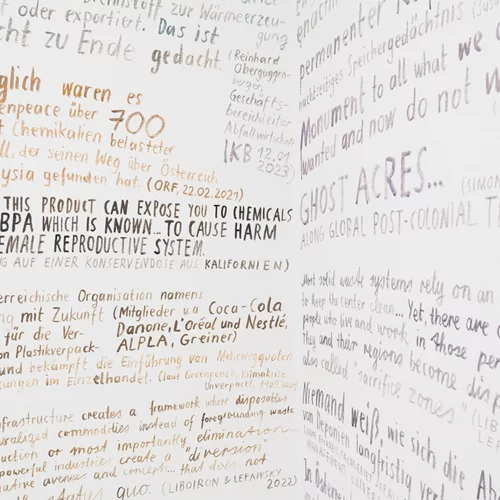 stoff zur Wärmeerzeu-
gung
oder exportiert. Das ist
cht zu Ende gedacht. (Reinhard
Oberguggen-
berger,
Geschäfts-
bereichsleiter
Abfallwirtschaft
IKB 12.01
2023)
glich waren es
enpeace über 700
t Chemikalien belasteter
ll, der seinen Weg über Österreich
ysia gefunden hat. (ORF, 22.02.2021)
THIS PRODUCT CAN EXPOSE YOU TO CHEMICALS
BPA WHICH IS KNOWN... TO CAUSE HARM
EMALE REPRODUCTIVE SYSTEM.
NG AUF EINER KONSERVENDOSE AUS KALIFORNIEN)
erreichische Organisation namens
ng mit Zukunft (Mitglieder u.a Coca-Cola
für die Ver- Danone, L'Oréal und Nestlé,
on Plastikverpack- ALPLA, Greiner)
und bekämpft die Einführung von Mehrwegquoten
ungen im Einzelhandel. (laut Greenpeace,
nfrastructure creates a framework where disposables
uralized commodities instead of foregrounding waste
uction or most importantly elimination
powerful industries create a "diversion"
native avenues and concepts... that does not
status quo. (LIBOIRON & LEPAWSKY
2022)
permanenter
Speichergedächtnis
Monument to all what we
wanted and now do not w
GHOST ACRES... (SIMON
ALONG GLOBAL POST-COLONIAL T
Most solid waste systems rely on an
to keep the center clean... Yet, there are
people who live and work in those per
they and their regions become disp
also called "sacrifice zones" (LIB
LE
Niemand weiß, wie sich die Ab
von Deponien langfristig ver